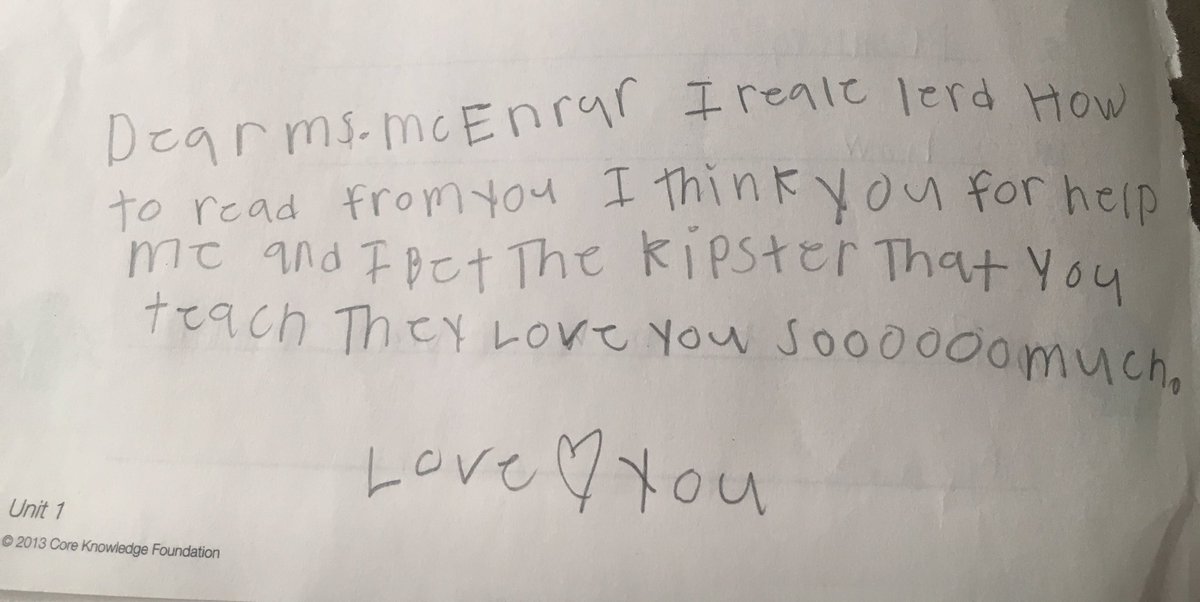 Dear ms. mcEnrar I reale lerd How
to read from you I think you for help
me and I Bet The kipster That you
teach They Love you sooooooomuch.
Love ♡ you
Unit 1
© 2013 Core Knowledge Foundation